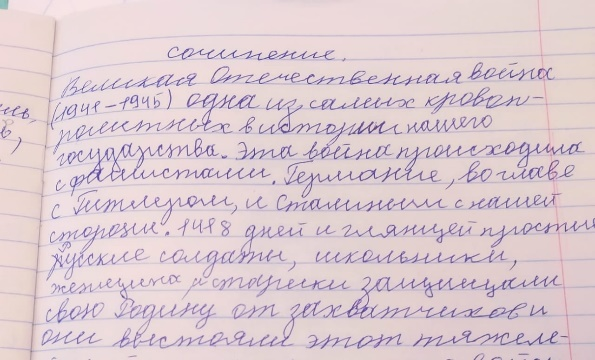 сочинение.
Великая Отечественная война
(1941-1945) одна из самых кровоп-
ролитных в истории нашего
государства. Эта война происходила
с фашистами. Германие, во главе
с Гитлером, и Сталиным с нашей
стороны. 1418 дней и
Русские солдаты, школьники,
женщина и старики защищали
свою Родину от захватчиков и
они выстояли этот тяжеле-